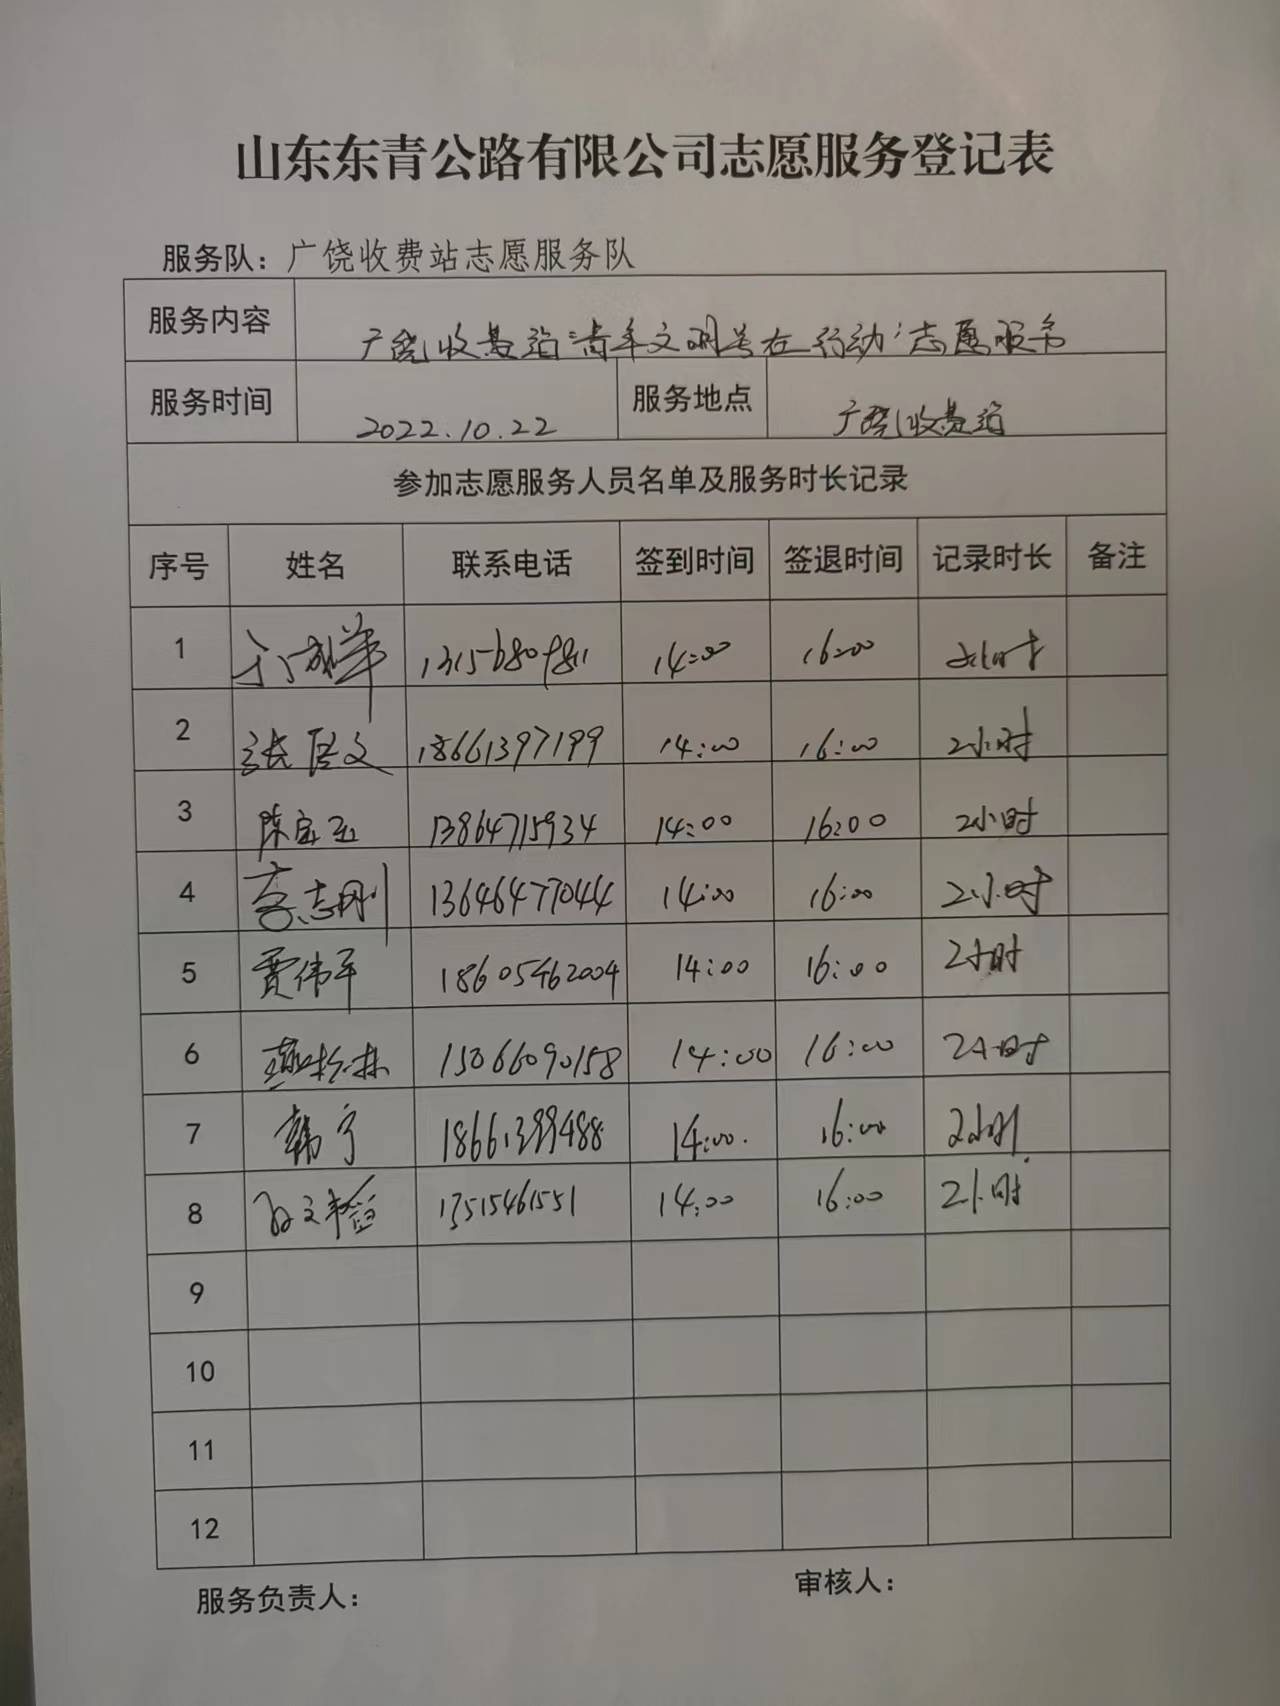 山东东青公路有限公司志愿服务登记表
服务队：广饶收费站志愿服务队
服务内容 广饶收费站"青年文明号在行动"志愿服务
服务时间 2022.10.22 服务地点 广饶收费站
参加志愿服务人员名单及服务时长记录
序号 姓名 联系电话 签到时间 签退时间 记录时长 备注
1 13156809811 14:00 16:00 2小时
2 张文 18661397199 14:00 16:00 2小时
3 陈宝玉 13864715934 14:00 16:00 2小时
4 李志刚 13646477044 14:00 16:00 2小时
5 贾伟平 18605462004 14:00 16:00 2小时
6 15066090158 14:00 16:00 2小时
7 韩宁 18661399488 14:00. 16:00 2小时
8 13515461551 14:00 16:00 2小时
9
10
11
12
服务负责人： 审核人：